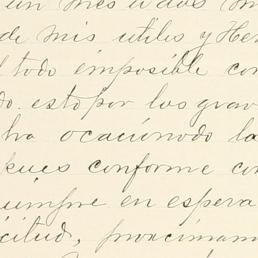 un mes o dos
de mis utiles y Her
l todo imposible con
do. esto por las grav
ha ocacionado la
pues conforme con
iempre en espera
citud, procsimam